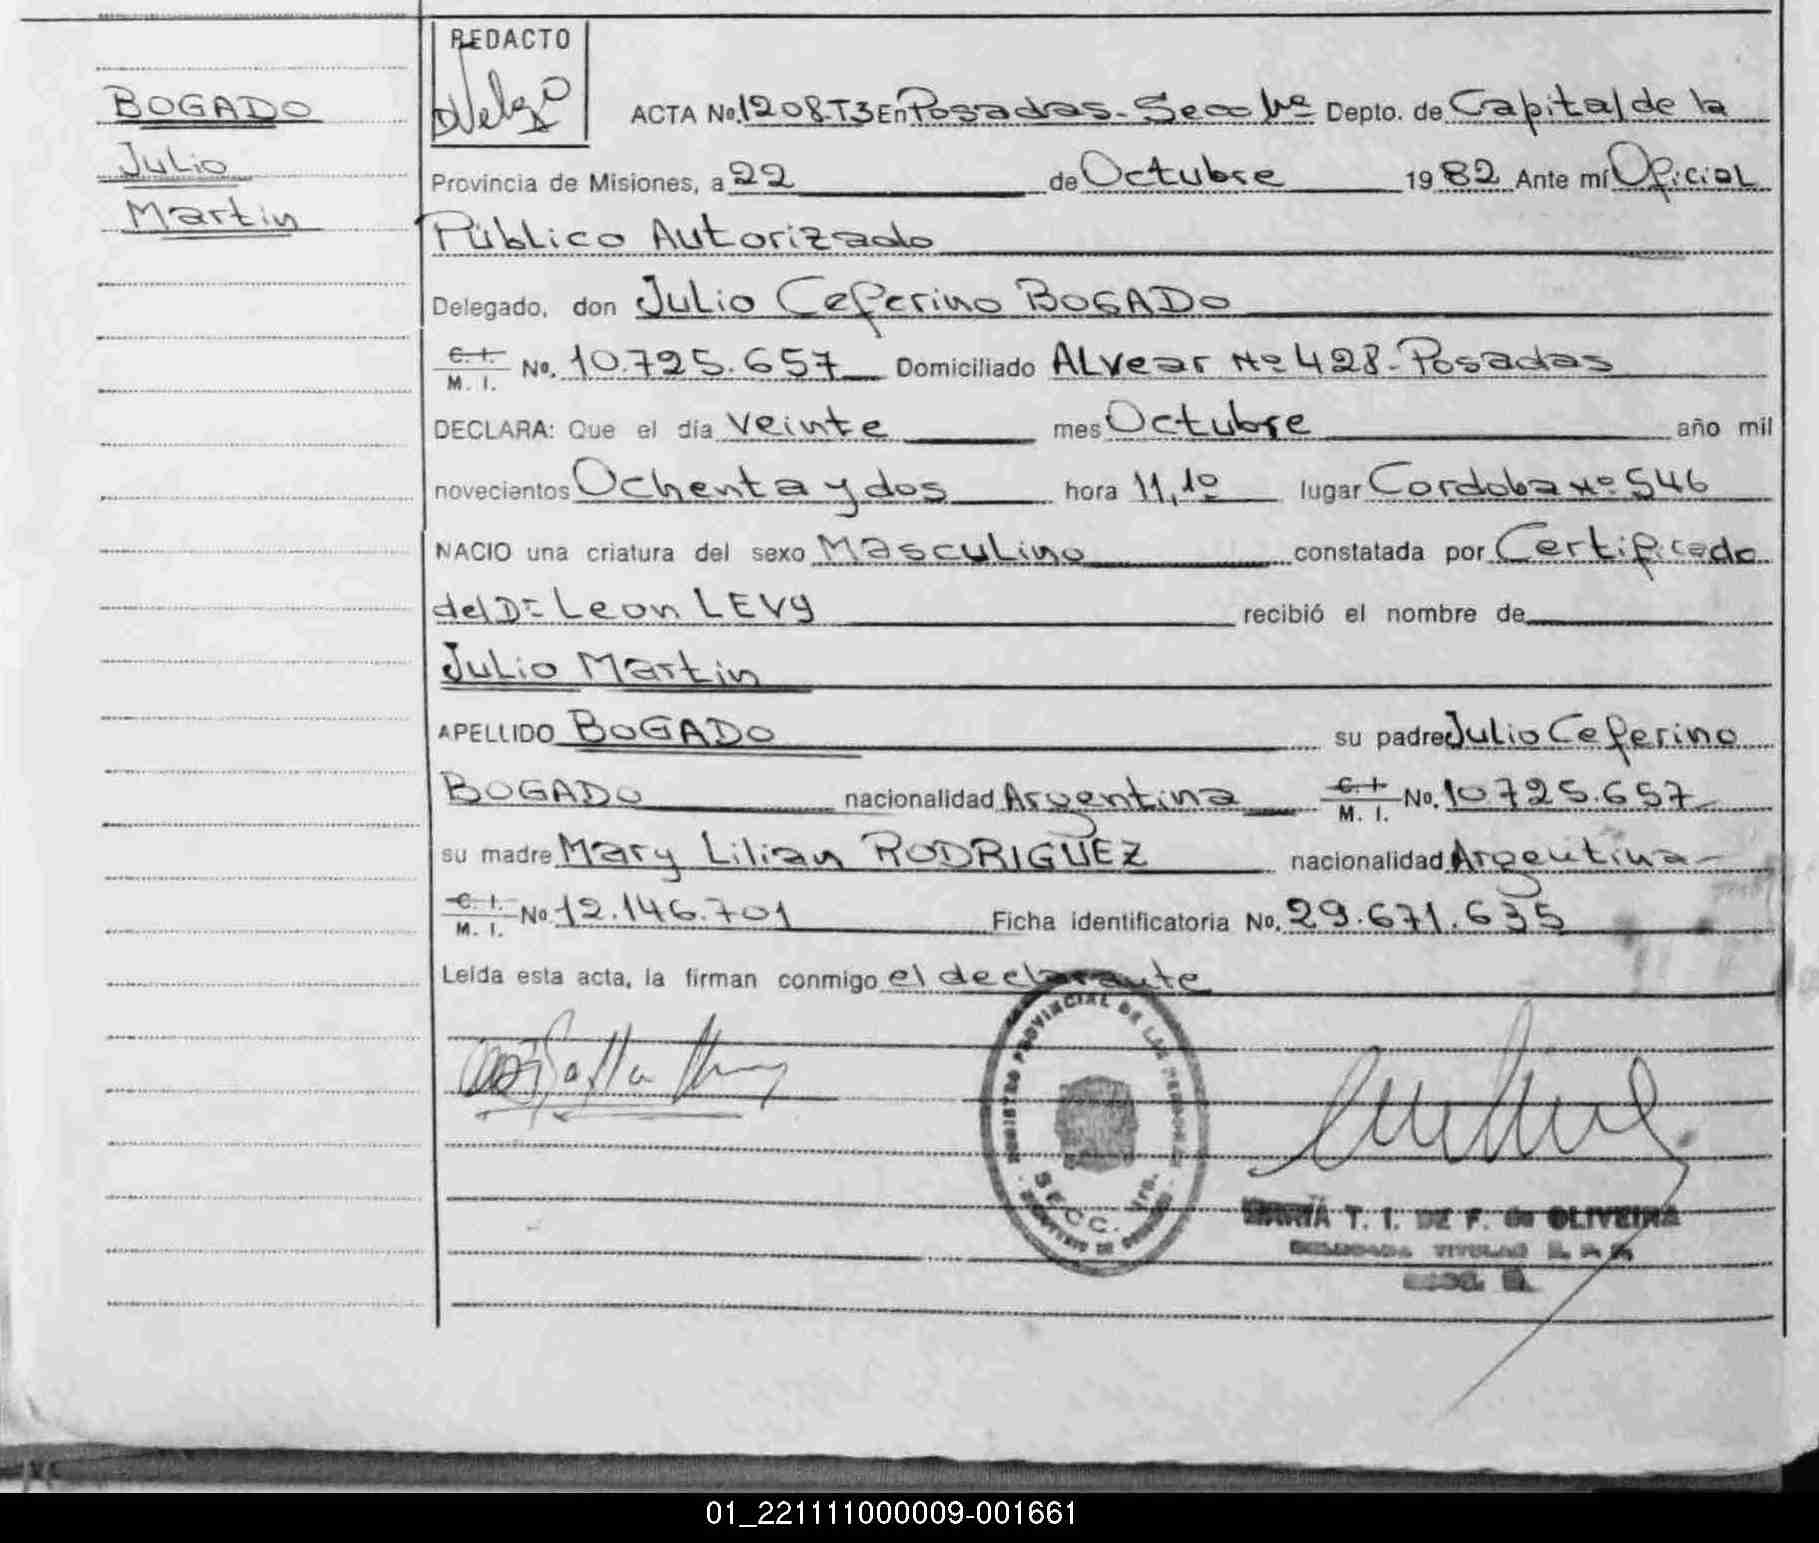 REDACTO
BOGADO
Julio
Martin
ACTA No. 1208-T3 En Posadas- Secc 1ra Depto. de Capital de la
Provincia de Misiones, a 22 de Octubre 1982 Ante mí Oficial
Público Autorizado
Delegado, don Julio Ceferino BOGADO
C. I. M. I. No. 10.725.657 Domiciliado Alvear Nº 428- Posadas
DECLARA: Que el día veinte mes Octubre año mil
novecientos Ochenta y dos hora 11,10 lugar Cordoba Nº 546
NACIO una criatura del sexo Masculino constatada por Certificado
del Dr Leon LEVY recibió el nombre de
Julio Martin
APELLIDO BOGADO su padre Julio Ceferino
BOGADO nacionalidad Argentina C. I. M. I. No. 10.725.657
su madre Mary Lilian RODRIGUEZ nacionalidad Argentina
C. I. M. I. No. 12.146.701 Ficha identificatoria No. 29.671.635
Leída esta acta, la firman conmigo el declarante
REGISTRO PROVINCIAL DE LAS PERSONAS
SECC. 1ra.
MARIA T. I. DE F. de OLIVEIRA
DELEGADA TITULAR R. P. P.
01_221111000009-001661